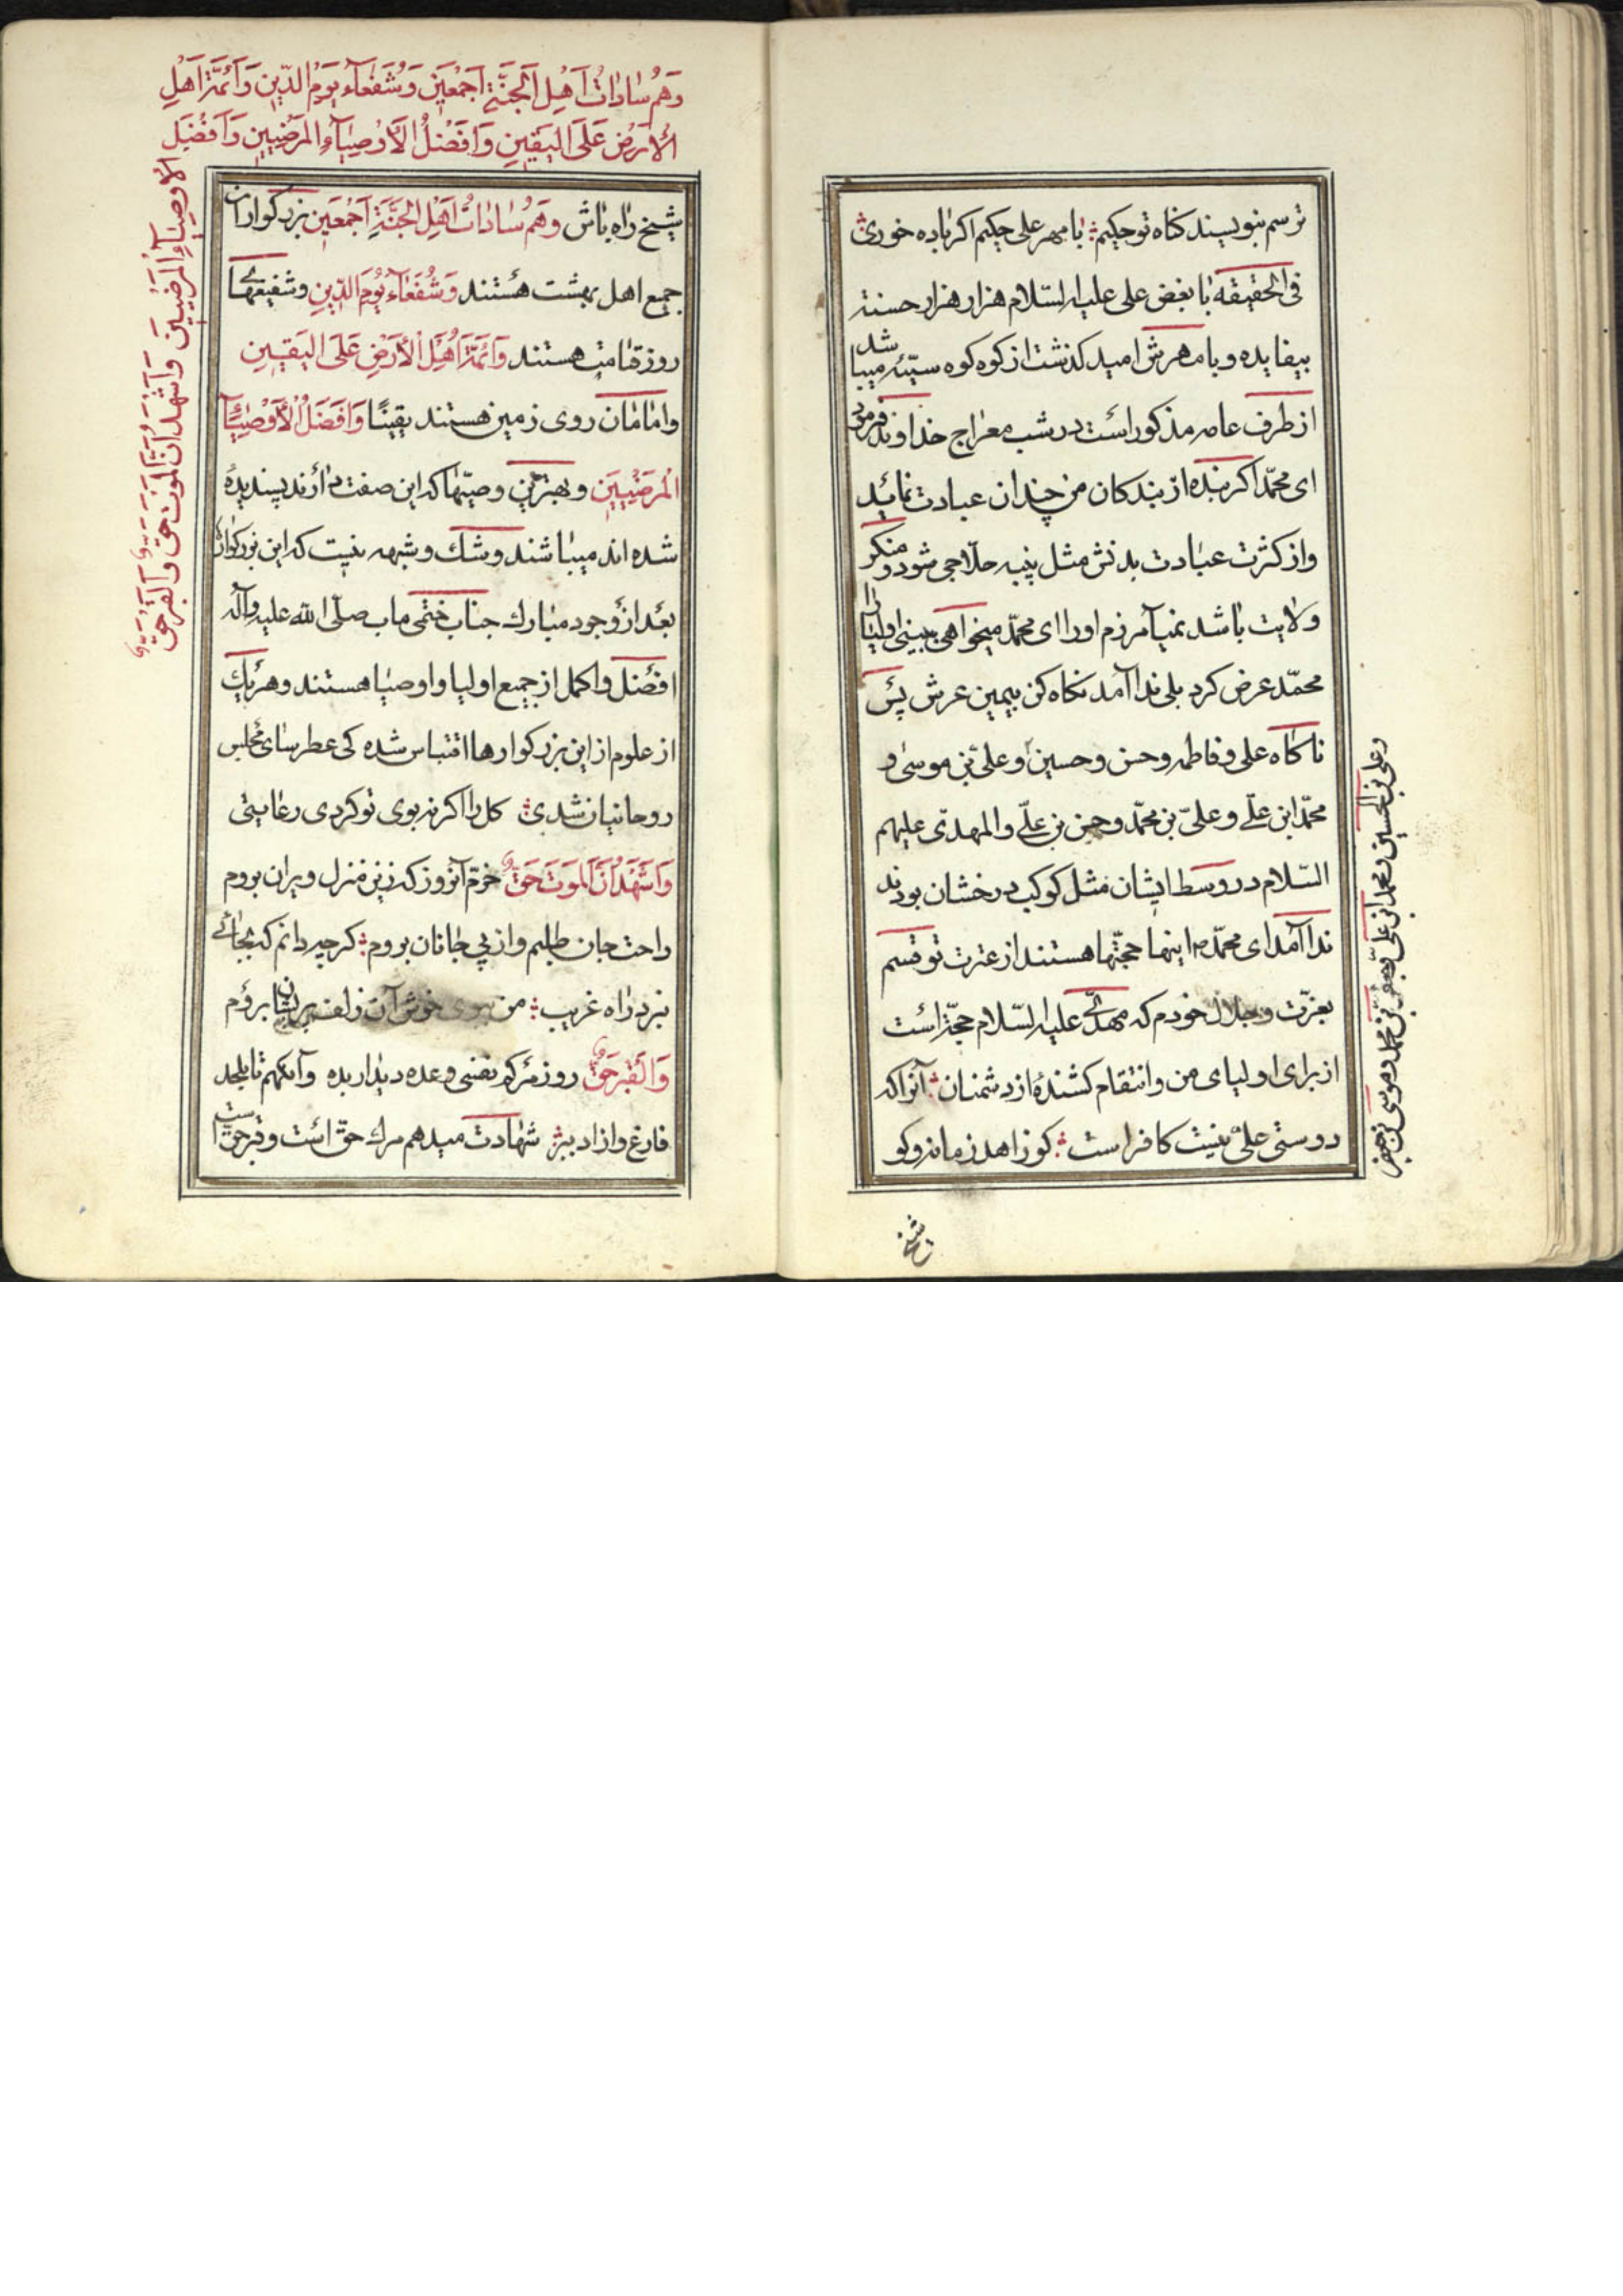 ترسم بنویسند کناه تو حکیم ؞ با مهر علی حکیم اکر باده خوری ؞
فی الحقیقه با بغض علی علیه السّلام هزار هزار حسنة
بیفایده و با مهرش امید کذشت از کوه کوه سیّئه میباشد
از طرف عامه مذکور است در شب معراج خداوند فرمود
ای محمّد اکر بنده از بندکان من چندان عبادت نماید
و از کثرت عبادت بدنش مثل پنبه حلاجی شود و منکر
ولایت باشد نمیآمرزم او را ای محمّد میخواهی ببینی اولیا را
محمّد عرض کرد بلی ندا آمد نکاه کن بیمین عرش پس
ناکاه علی و فاطمه و حسن و حسین و علی بن موسی و
محمّد ابن علے و علیّ بن محمّد و حسن بن علے و المهدی علیهم
السّلام در وسط ایشان مثل کوکب درخشان بودند
ندا آمد ای محمّد اینها حجّتها هستند از عترت تو قسم
بعزّت و جلال خودم که مهدے علیه السّلام حجّة است
از برای اولیای من و انتقام کشندهٔ از دشمنان ؞ آنرا که
دوستی علی نیست کافر است ؞ کو زاهد زمانه و کو
و علی بن الحسین و محمد ابن علی و جعفر بن محمد و موسی بن جعفر
شیخ
وَهُم سٰادٰاتُ اَهْلِ الْجَنَّةِ اَجْمَعَینَ وَشُفَعٰآءُ یَوْمِ الدّینِ وَاَئمَّةُ اَهْلِ
الْاَرَضِ عَلَی الیَقینِ وَاَفْضَلُ الْاَوْصِیٰآءِ المَرَضْیینَ وَاَفْضَل
الاوصیٰآءِ المَرضیینَ وَاَشْهَدُ اَنَّ الْمَوْتَ حَقٌ وَالْقَبْرَ حَقٌ
شیخ راه باش وَهُم سٰادٰاتُ اَهْلِ الْجَنَّةِ اَجْمَعَین بزرکواران
جمیع اهل بهشت هستند وَشُفَعٰآءُ یَوْمَ الدّینِ و شفیعهاے
روز قیامت هستند وَاَئمَّةُ اَهْلِ الْاَرَضِ عَلَی الیَقینِ
و امامان روی زمین هستند یقینًا وَاَفَضَلُ الْاَوْصِیٰآءِ
الْمُرَضْیینَ و بهترین وصیّها که این صفت دارند پسندیدهٔ
شده اند میباشند و شک و شبهه نیست که این بزرکواران
بعد از وجود مبارک جناب ختمی ماب صلّی الله علیه و آله
افضل و اکمل از جمیع اولیا و اوصیا هستند و هر یک
از علوم از این بزرکوارها اقتباس شده کی عطر سای مجلس
روحانیان شدی ؞ کل را اکر نه بوی تو کردی رعایتی
وَاَشْهَدُ اَنَّ الْمَوتَ حَقٌّ خرّم آنروز کزین منزل ویران بروم
راحت جان طلبم و از پی جانان بروم ؞ کرچه دانم که بجائے
نبرد راه غریب ؞ من ببوی خوش آن زلف پریشان بروم
وَالْقَبْرَ حَقٌّ روز مرکم نفسی وعده دیدار بده وآنکهم تا بلحد
فارغ و ازاد ببر ؞ شهادت میدهم مرک حق است و قبر حق است